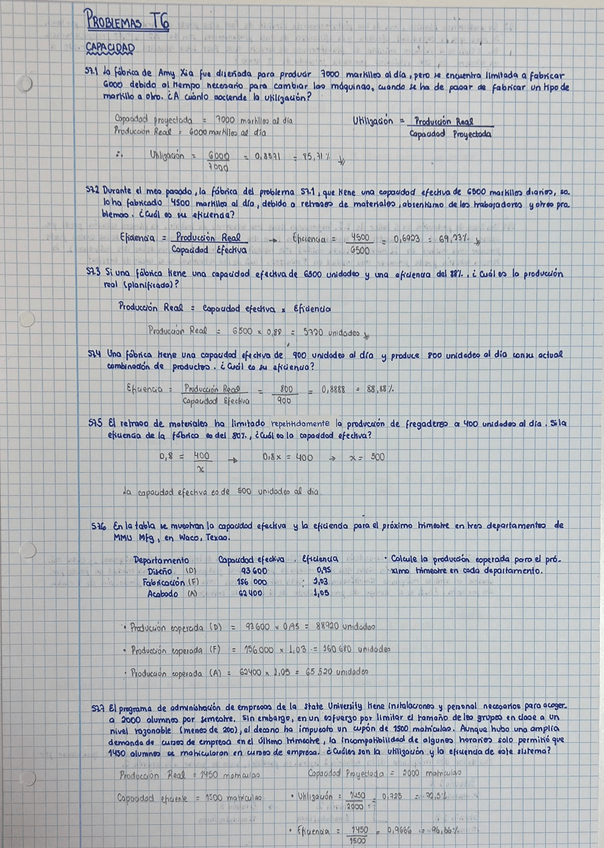 PROBLEMAS T6
CAPACIDAD
S7.1 La fábrica de Amy Xia fue diseñada para producir 7000 martillos al día, pero se encuentra limitada a fabricar
6000 debido al tiempo necesario para cambiar las máquinas, cuando se ha de pasar de fabricar un tipo de
martillo a otro. ¿A cuánto asciende la utilización?
Capacidad proyectada = 7000 martillos al día
Producción Real = 6000 martillos al día
Utilización = Producción Real
Capacidad Proyectada
∴ Utilización = 6000 = 0,8571 = 85,71%
7000
S7.2 Durante el mes pasado, la fábrica del problema S7.1, que tiene una capacidad efectiva de 6500 martillos diarios, so-
lo ha fabricado 4500 martillos al día, debido a retrasos de materiales, absentismo de los trabajadores y otros pro-
blemas. ¿Cuál es su eficiencia?
Eficiencia = Producción Real → Eficiencia = 4500 = 0,6923 = 69,23%
Capacidad Efectiva 6500
S7.3 Si una fábrica tiene una capacidad efectiva de 6500 unidades y una eficiencia del 88%, ¿Cuál es la producción
real (planificada)?
Producción Real = Capacidad efectiva x Eficiencia
Producción Real = 6500 x 0,88 = 5720 unidades
S7.4 Una fábrica tiene una capacidad efectiva de 900 unidades al día y produce 800 unidades al día con su actual
combinación de productos. ¿Cuál es su eficiencia?
Eficiencia = Producción Real = 800 = 0,8888 = 88,88%
Capacidad Efectiva 900
S7.5 El retraso de materiales ha limitado repetidamente la producción de fregaderos a 400 unidades al día. Si la
eficiencia de la fábrica es del 80%, ¿Cuál es la capacidad efectiva?
0,8 = 400 → 0.8x = 400 → x = 500
x
La capacidad efectiva es de 500 unidades al día
S7.6 En la tabla se muestran la capacidad efectiva y la eficiencia para el próximo trimestre en tres departamentos de
MMU Mfg, en Waco, Texas.
Departamento Capacidad efectiva Eficiencia
Diseño (D) 93600 0,95
Fabricación (F) 156 000 1,03
Acabado (A) 62400 1,05
• Calcule la producción esperada para el pró-
ximo trimestre en cada departamento.
• Producción esperada (D) = 93600 x 0,95 = 88920 unidades
• Producción esperada (F) = 156000 x 1,03 = 160 680 unidades
• Producción esperada (A) = 62400 x 1,05 = 65 520 unidades
S7.7 El programa de administración de empresas de la State University tiene instalaciones y personal necesarios para acoger
a 2000 alumnos por semestre. Sin embargo, en un esfuerzo por limitar el tamaño de los grupos en clase a un
nivel razonable (menos de 200), el decano ha impuesto un cupón de 1500 matrículas. Aunque hubo una amplia
demanda de cursos de empresa en el último trimestre, la incompatibilidad de algunos horarios solo permitió que
1450 alumnos se matricularan en cursos de empresa. ¿Cuáles son la utilización y la eficiencia de este sistema?
Producción Real = 1450 matrículas Capacidad Proyectada = 2000 matrículas
Capacidad eficiente = 1500 matrículas • Utilización = 1450 = 0,725 = 72,5%
2000
• Eficiencia = 1450 = 0,9666 = 96,66%
1500